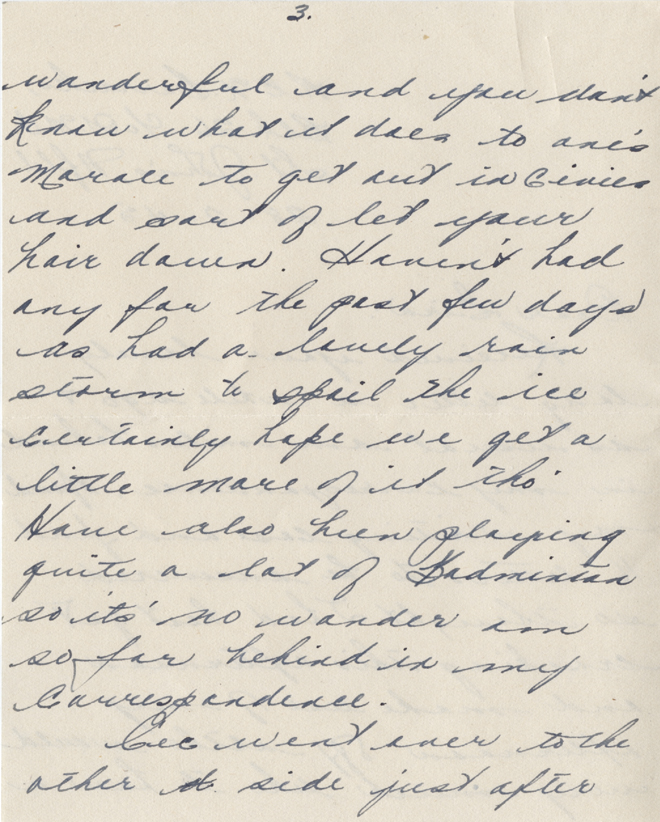 3.
wonderful and you don't
know what it does to one's
Morale to get out in Civies
and sort of let your
hair down. Haven't had
any for the past few days
as had a lovely rain
storm to spoil the ice
Certainly hope we get a
little more of it tho'
Have also been playing
quite a lot of Badminton
so its' no wonder am
so far behind in my
Correspondence.
Cec went over to the
other side just after